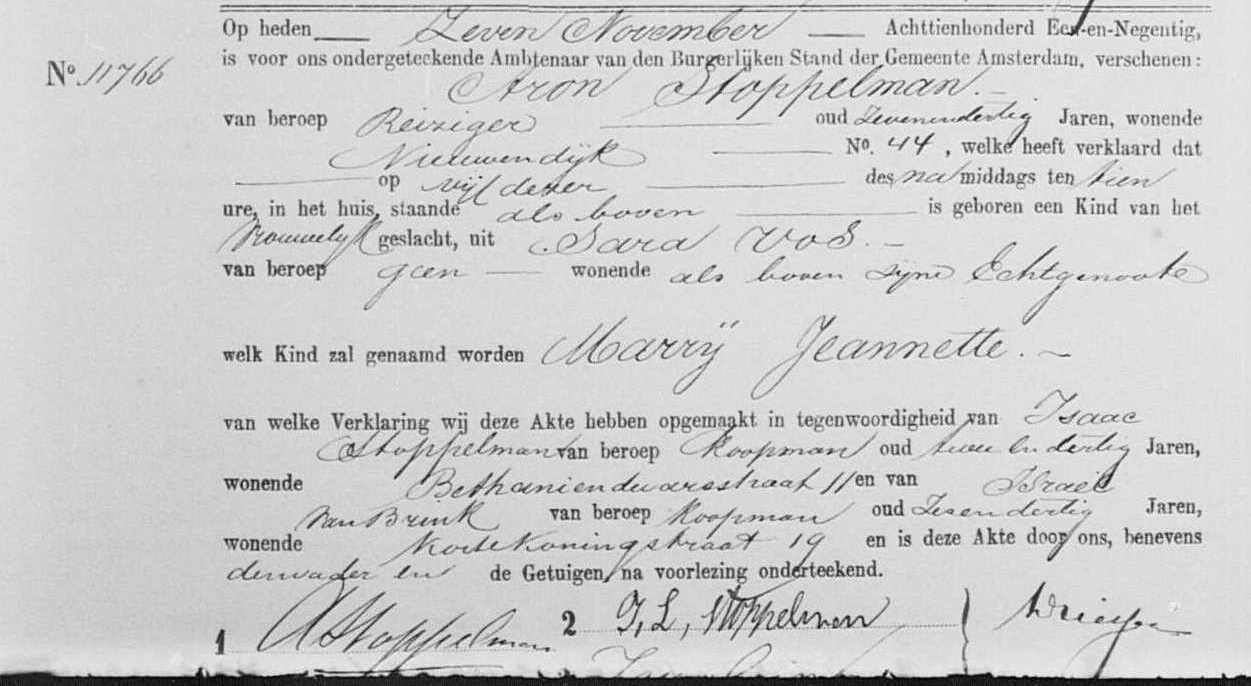 Op heden Zeven November Achttienhonderd Een-en-Negentig,
is voor ons ondergeteekende Ambtenaar van den Burgerlijken Stand der Gemeente Amsterdam, verschenen:
No. 11766
Aron Stoppelman.
van beroep Reiziger oud Zevenendertig Jaren, wonende
Nieuwendijk No. 44, welke heeft verklaard dat
op vijf dezer des na middags ten tien
ure, in het huis, staande als boven is geboren een Kind van het
Vrouwelijk geslacht, uit Sara Vos.
van beroep geen wonende als boven zijne Echtgenoote
welk Kind zal genaamd worden Marrij Jeannette.
van welke Verklaring wij deze Akte hebben opgemaakt in tegenwoordigheid van Isaac
Stoppelman van beroep Koopman oud twee en dertig Jaren,
wonende Bethaniendwarsstraat 11 en van Israel
van Brink van beroep Koopman oud Zesendertig Jaren,
wonende Korte Koningstraat 19 en is deze Akte door ons, benevens
den vader en de Getuigen, na voorlezing onderteekend.
1 A Stoppelman 2 I, L, Stoppelman